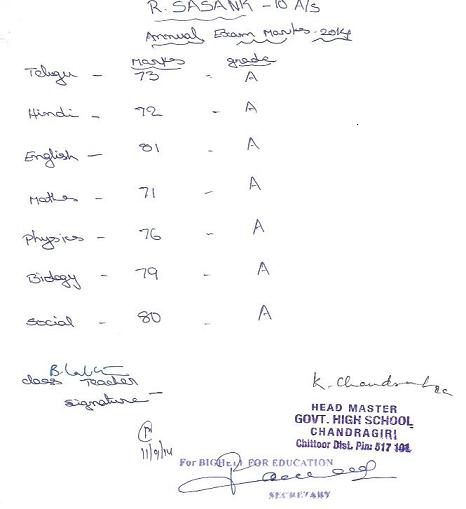 R. SASANK - 10 A/s
Annual Exam Marks - 2014
Marks grade
Telugu - 73 - A
Hindi - 72 - A
English - 81 - A
Maths - 71 - A
Physics - 76 - A
Biology - 79 - A
Social - 80 - A
class Teacher
signature
HEAD MASTER
GOVT. HIGH SCHOOL
CHANDRAGIRI
Chittoor Dist. Pin: 517 101
11/9/14
For FOR EDUCATION
SECRETARY